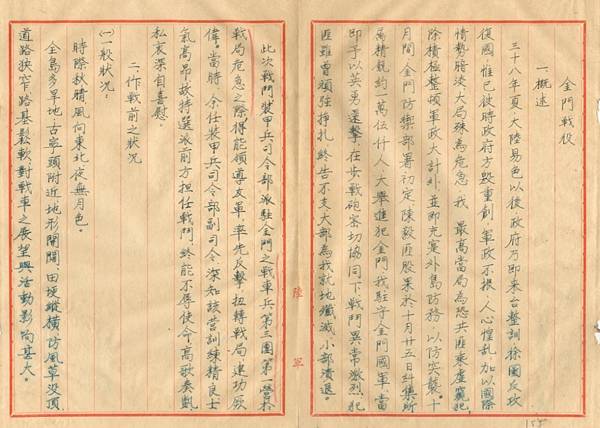 金門戰役
一、概述
三十八年夏，大陸易色以後，政府乃即來台整訓，徐圖反攻
復國，惟已彼時政府方毀重創，軍政不振，人心惶亂，加以國際
情勢暗淡，大局殊為危急，我 最高當局為恐共匪乘虛襲犯，
除積極整頓軍政大計外，並即充實外島防務，以防突襲。十
月間，金門防禦部署初定，陳毅匪股果於十月廿五日糾集所
萬精銳約一萬伍仟人，大舉進犯金門，我駐守金門國軍，當
即予以英勇還擊，在步戰砲密切協同下，戰鬥異常激烈，犯
匪雖曾頑強掙扎，終告不支，大部為我就地殲滅，小部潰退。
陸軍
此次戰鬥，裝甲兵司令部派駐金門之戰車兵第三團第一營於
戰局危急之際，得能領導友軍，率先反擊，扭轉戰局，建功厥
偉。當時，余任裝甲兵司令部副司令，深知該營訓練精良，士
氣高昂，故特選派前方担任戰鬥，終能不辱使命，高歌奏凱，
私衷深自喜慰。
二、作戰前之狀況
(一)一般狀況：
時際秋腊，風向東北，夜無月色。
全島多旱地，古寧頭附近地形開闊，田埂縱橫，防風草沒頂，
道路狹窄，路基鬆軟，對戰車之展望與活動影响甚大。